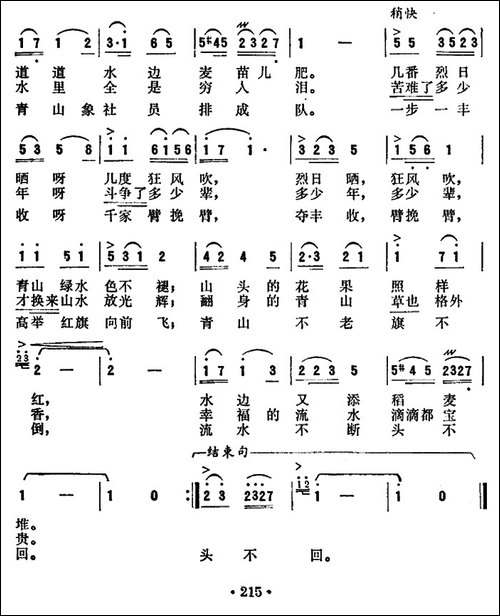 稍快
1 7 1 2 | 3·1 6 5 | 5#45 2327 | 1 — | 5 5 3523 |
道道 水边 麦苗儿 肥。 几番 烈日
水里 全是 穷人 泪。 苦难了多少
青山 象社 员排成 队。 一步一丰
5 3 5 8 | 1 1 6156 | 1 7 1· | 3 2 3 5 | 1 5 6 1 |
晒呀 几度 狂风 吹， 烈日晒， 狂风吹，
年呀 斗争了多少 辈， 多少年， 多少辈，
收呀 千家 臂挽 臂， 夺丰收， 臂挽臂，
1 1 5 1 | 5 5 3 1 2 | 4 2 4 5 | 2·3 2 1 | 1 7 1 |
青山 绿水 色不 褪； 山头的 花果 照样
才换来山水 放光 辉； 翻身的 青山 草也格外
高举 红旗 向前 飞； 青山 不老 旗不
2 3 2 — | 2 — | 1 7 1 5 | 2 2 3 5 | 5#4 5 2327 |
红， 水边 又添 稻麦
香， 幸福的 流水 滴滴都宝
倒， 流水 不断 头不
结束句
1 — | 1 0 :| 2 3 2327 | 1 2 1 — | 1 0 |
堆。
贵。
回。 头不 回。
·215·